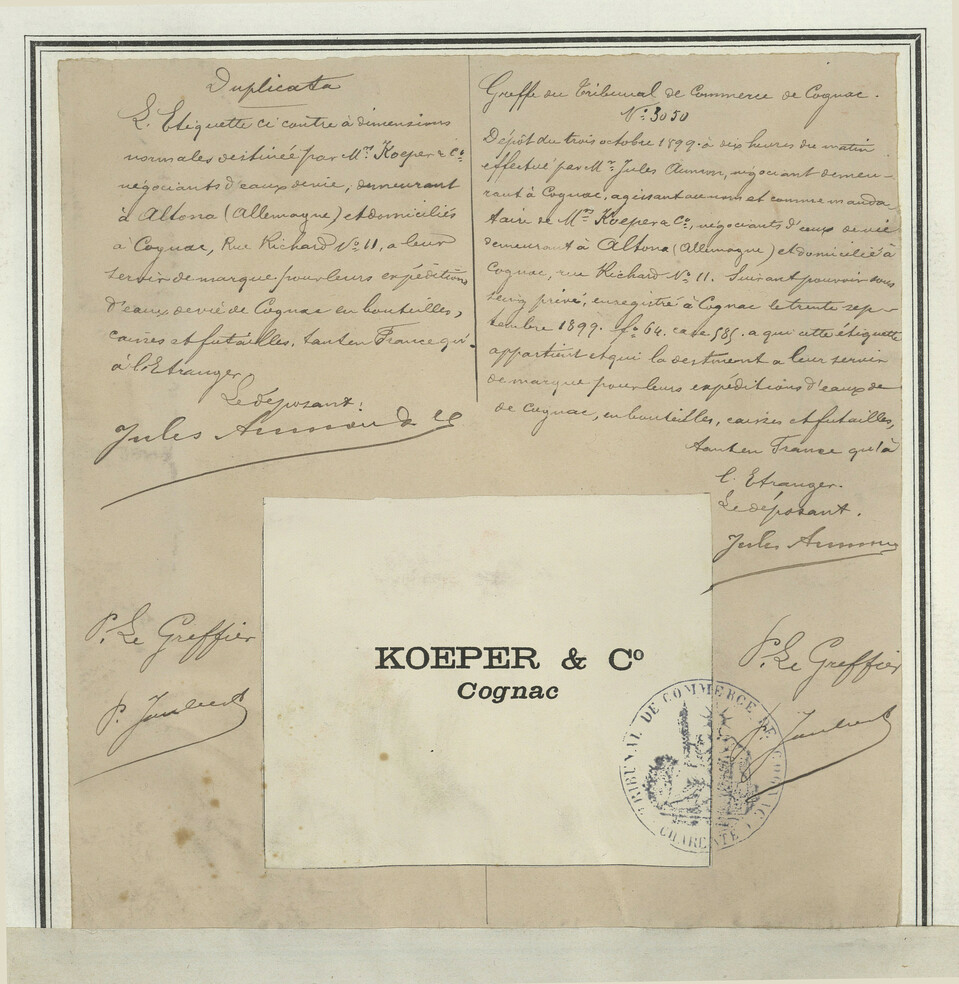 Duplicata
L'Etiquette ci contre à dimensions
normales destinée par Mrs Koeper & Co
négociants d'eaux de vie, demeurant
à Altona (Allemagne) et domiciliés
à Cognac, Rue Richard No 11, a leur
servir de marque pour leurs expéditions
d'eaux de vie de Cognac en bouteilles,
caisses et futailles, tant en France qu'
à l'Etranger
Le déposant:
Jules
P. Le Greffier
P.
Greffe du Tribunal de Commerce de Cognac.
No 3050
Dépôt du trois octobre 1899 à dix heures du matin
effectué par Mr Jules négociant demeu-
rant à Cognac, agissant au nom et comme manda-
taire de Mrs Koeper & Co, négociants d'eaux de vie
demeurant à Altona (Allemagne) et domicilié à
Cognac, rue Richard No 11. Suivant pouvoir sous
seing privé, enregistré à Cognac le trente sep-
tembre 1899. fo 64. case 585. a qui cette étiquette
appartient et qui la destinent a leur servir
de marque pour leurs expéditions d'eaux de
de Cognac, en bouteilles, caisses et futailles,
tant en France qu'à
l'Etranger.
Le déposant.
Jules
P. Le Greffier
KOEPER & Co
Cognac
TRIBUNAL DE COMMERCE DE COGNAC
CHARENTE